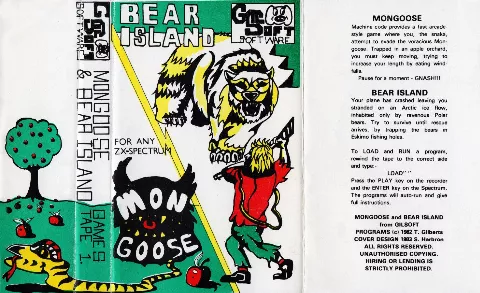 GILSOFT
SOFTWARE
MONGOOSE
& BEAR ISLAND
GAMES
TAPE 1
BEAR
ISLAND
GILSOFT
SOFTWARE
FOR ANY
ZX-SPECTRUM
MON
GOOSE
MONGOOSE
Machine code provides a fast arcade-
style game where you, the snake,
attempt to evade the voracious Mon-
goose. Trapped in an apple orchard,
you must keep moving, trying to
increase your length by eating wind-
falls.
Pause for a moment - GNASH!!!
BEAR ISLAND
Your plane has crashed leaving you
stranded on an Arctic ice flow,
inhabited only by ravenous Polar
bears. Try to survive until rescue
arrives, by trapping the bears in
Eskimo fishing holes.
To LOAD and RUN a program,
rewind the tape to the correct side
and type:-
LOAD""
Press the PLAY key on the recorder
and the ENTER key on the Spectrum.
The programs will auto-run and give
full instructions.
MONGOOSE and BEAR ISLAND
from GILSOFT
PROGRAMS (c) 1982 T. Gilberts
COVER DESIGN 1983 S. Harbron
ALL RIGHTS RESERVED.
UNAUTHORISED COPYING.
HIRING OR LENDING IS
STRICTLY PROHIBITED.